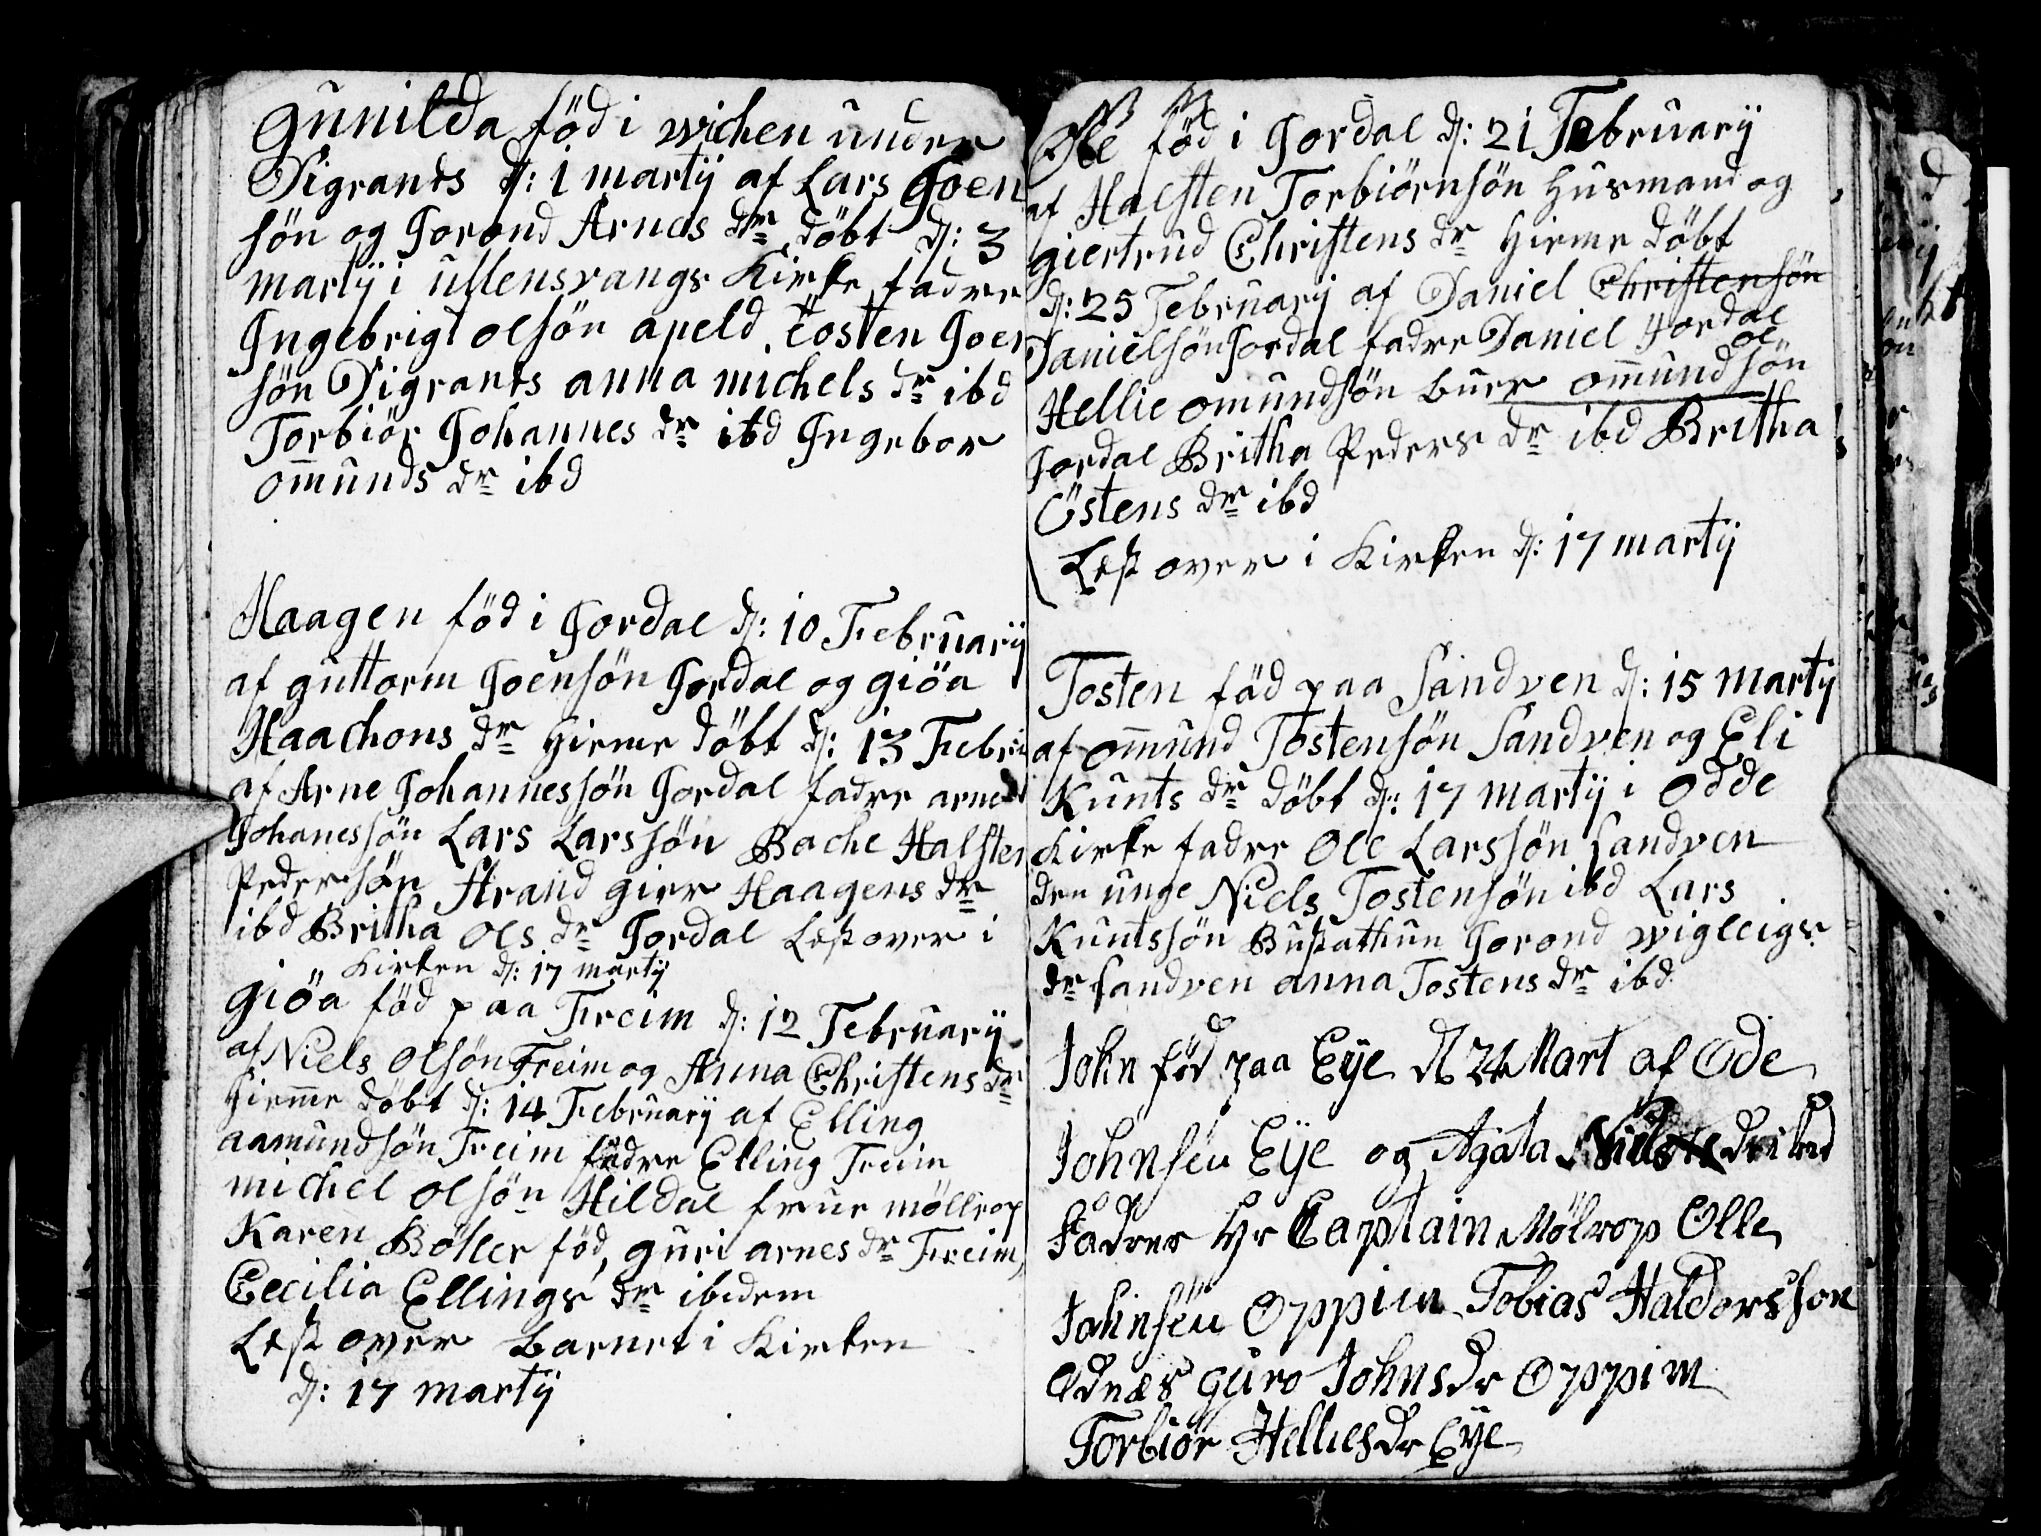 Gunilda föd i wichen under
Digrants d: 1 martÿ af Lars Joen
sön og Jorond Arnes dr döbt d: 3
martÿ i ullensvangs Kirke fadre
Ingebrigt olsön apeld, Tosten Joen
sön Digrants anna michels dr ibd
Torbiör Johannes dr ibd Ingebor
omunds dr ibd
Haagen föd i Jordal d: 10 Februarÿ
af guttorm Joensön Jordal og giöa
Haachons dr hieme döbt d: 13 Febru
af Arne Johannessön Jordal fadre arne
Johanessön Lars Larssön Bache Halsten
Pedersön Strand gier Haagens dr
ibd Britha Ols dr Jordal Læst over i
Kirken d: 17 martÿ
giöa föd paa Freim d: 12 Februarÿ
af Niels Olsön Freim og Anna Christens dr
hieme döbt d: 14 Februarÿ af Elling
aamundsön Freim fadre Elling Freim
michel olsön Hildal frue möllrop
Karen Böller föd, guri arnes dr Freim,
Cecilia Ellings dr ibidem
Læst over barnet i Kirken
d: 17 martÿ
Ole föd i Jordal d: 21 Februarÿ
af Halsten Torbiörnsön Husmand og
giertrud Christens dr hieme döbt
d: 25 Februarÿ af Daniel Christensön
Danielsön Jordal fadre Daniel Jordal
ol
Hellie omundsön buer omundsön
Jordal Britha Peders dr ibd Britha
Östens dr ibd
Læst over i Kirken d: 17 martÿ
Tosten föd paa Sandven d: 15 martÿ
af omund Tostensön Sandven og Eli
Kunts dr döbt d: 17 martÿ i Odde
Kirke fadre Ole Larssön Sandven
den unge Niels Tostensön ibd Lars
Kuntssön Bustathun Jorond wigleigs
dr Sandven anna Tostens dr ibd
John föd paa Eÿe d 24 Mart af Ode
Johnsen Eÿe og Agata Niels dr ibd
Fadrer Hr Captain Mölrop Olle
Johnsen Oppiem Tobias Haldorsson
Ednæs guro Johnsdr Oppim
Torbiör Helliesdr Eÿe